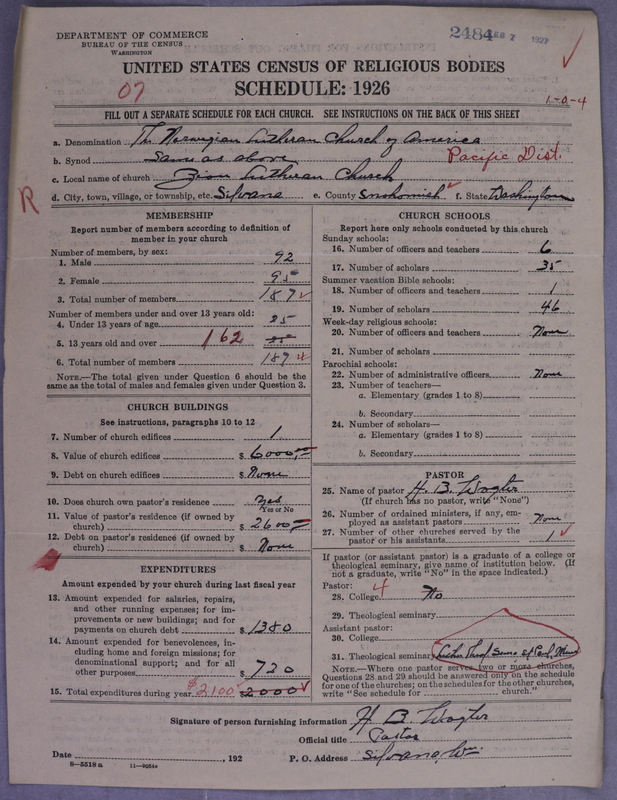 DEPARTMENT OF COMMERCE
BUREAU OF THE CENSUS
WASHINGTON
2484 FEB 7 1927
UNITED STATES CENSUS OF RELIGIOUS BODIES
SCHEDULE: 1926
07
1-0-4
FILL OUT A SEPARATE SCHEDULE FOR EACH CHURCH. SEE INSTRUCTIONS ON THE BACK OF THIS SHEET
a. Denomination The Norwegian Lutheran Church of America
b. Synod Same as above Pacific Dist.
c. Local name of church Zion Lutheran Church
d. City, town, village, or township, etc. Silvana e. County Snohomish f. State Washington
R
MEMBERSHIP
Report number of members according to definition of
member in your church
Number of members, by sex:
1. Male 92
2. Female 95
3. Total number of members 187
Number of members under and over 13 years old:
4. Under 13 years of age 25
5. 13 years old and over 162
6. Total number of members 187
NOTE.—The total given under Question 6 should be the
same as the total of males and females given under Question 3.
CHURCH BUILDINGS
See instructions, paragraphs 10 to 12
7. Number of church edifices 1
8. Value of church edifices $ 6000.00
9. Debt on church edifices $ None
10. Does church own pastor's residence Yes
Yes or No
11. Value of pastor's residence (if owned by
church) $ 2600
12. Debt on pastor's residence (if owned by
church) $ None
EXPENDITURES
Amount expended by your church during last fiscal year
13. Amount expended for salaries, repairs,
and other running expenses; for im-
provements or new buildings; and for
payments on church debt $ 1380
14. Amount expended for benevolences, in-
cluding home and foreign missions; for
denominational support; and for all
other purposes $ 720
15. Total expenditures during year $2100 2000
CHURCH SCHOOLS
Report here only schools conducted by this church
Sunday schools:
16. Number of officers and teachers 6
17. Number of scholars 35
Summer vacation Bible schools:
18. Number of officers and teachers 1
19. Number of scholars 46
Week-day religious schools:
20. Number of officers and teachers None
21. Number of scholars
Parochial schools:
22. Number of administrative officers None
23. Number of teachers—
a. Elementary (grades 1 to 8)
b. Secondary
24. Number of scholars—
a. Elementary (grades 1 to 8)
b. Secondary
PASTOR
25. Name of pastor H. B.
(If church has no pastor, write "None")
26. Number of ordained ministers, if any, em-
ployed as assistant pastors None
27. Number of other churches served by the
pastor or his assistants 1
If pastor (or assistant pastor) is a graduate of a college or
theological seminary, give name of institution below. (If
not a graduate, write "No" in the space indicated.)
Pastor: 4
28. College No
29. Theological seminary
Assistant pastor:
30. College
31. Theological seminary Luther Theol. Sem. St Paul, Minn
NOTE.—Where one pastor serves two or more churches,
Questions 28 and 29 should be answered only on the schedule
for one of the churches; on the schedules for the other churches,
write "See schedule for church."
Signature of person furnishing information H. B.
Official title Pastor
Date , 192 P. O. Address Silvana, Wn.
8-5518 a 11-9254